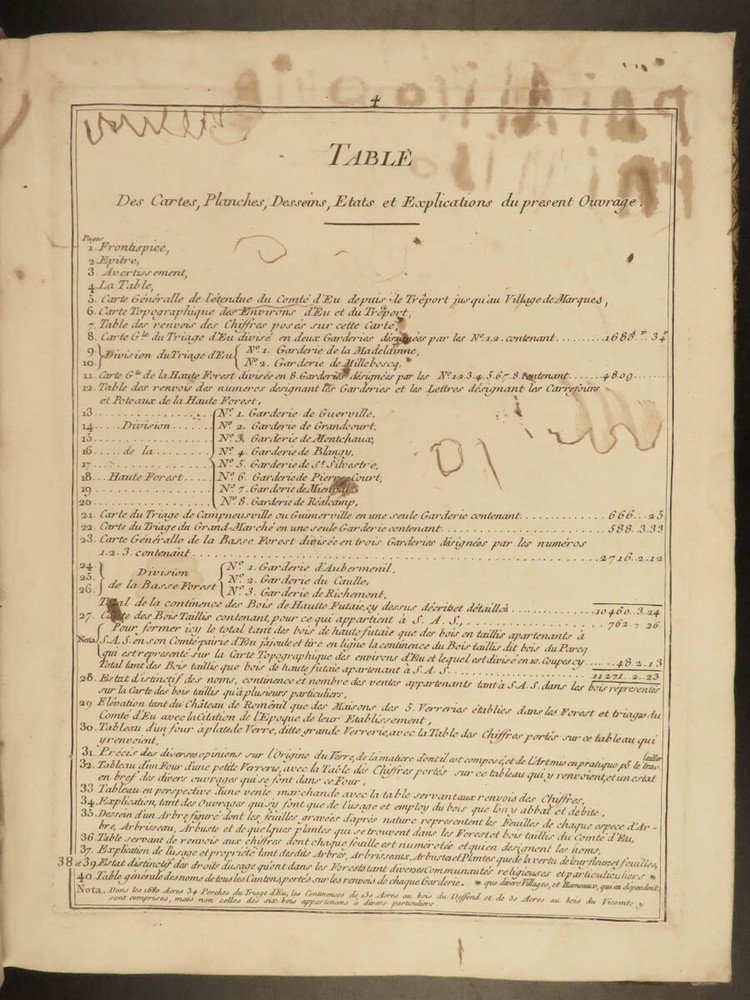 4
TABLE
Des Cartes, Planches, Desseins, Etats et Explications du present Ouvrage.
Pages
1. Frontispice,
2. Epitre,
3. Avertissement,
4. La Table,
5. Carte Généralle de l'étendue du Comté d'Eu depuis le Tréport jusqu'au Village de Marques,
6. Carte Topographique des Environs d'Eu et du Tréport,
7. Table des renvois des Chiffres posés sur cette Carte,
8. Carte Gle du Triage d'Eu divisé en deux Garderies désignées par les Nos. 1. 2. contenant..........1688. 34
9. Division du Triage d'Eu { No. 1. Garderie de la Madelainne,
10. No. 2. Garderie de Milleboscq,
11. Carte Gle de la Haute Forest divisée en 8. Garderies désignées par les Nos. 1. 2. 3. 4. 5. 6. 7. 8. contenant......4809
12. Table des renvois des numeros designant les Garderies et les Lettres désignant les Carrefours
et Poteaux de la Haute Forest,
13 No. 1. Garderie de Guerville.
14 Division No. 2. Garderie de Grandcourt,
15 No. 3. Garderie de Montchaux,
16 de la No. 4. Garderie de Blangy,
17 No. 5. Garderie de St. Silvestre,
18 Haute Forest No. 6. Garderie de Pierre Court,
19 No. 7. Garderie de
20 No. 8. Garderie de Réalcamp,
21. Carte du Triage de Campneusville ou Guimerville en une seule Garderie contenant........666..25
22. Carte du Triage du Grand-Marché en une seule Garderie contenant........588. 3. 33
23. Carte Générale de la Basse Forest divisée en trois Garderies désignées par les numéros
1. 2. 3. contenant........2716. 2. 12
24. No. 1. Garderie d'Aubermenil,
25. Division de la Basse Forest No. 2. Garderie du Caulle,
26. No. 3. Garderie de Richemont,
Total de la continence des Bois de Hautte Futaie, cy dessus décrit et détaillés........10460. 3. 24
27. Carte des Bois Taillis contenant, pour ce qui appartient à S. A. S.,........762. 26
Nota Pour fermer icy le total tant des bois de haute futaie que des bois en taillis apartenants à
S. A. S. en son Comté-pairie d'Eu j'ajoute et tire en ligne la continence du Bois taillis dit bois du Parcq
qui est representé sur la Carte Topographique des environs d'Eu et lequel est divisé en 10. Coupes cy......48. 2. 13
Total tant des Bois taillis que bois de haute futaie apartenant à S. A. S.........11271. 2. 23
28. Estat distinctif des noms, continence et nombre des ventes appartenants tant à S. A. S. dans les bois représentés
sur la Carte des bois taillis qu'à plusieurs particuliers,
29 Elevation tant du Château de Romenil que des Maisons des 5. Verreries établies dans les Forest et triages du
Comté d'Eu avec la Citation de l'Epoque de leur Etablissement,
30. Tableau d'un four a plate de Verre, ditte grande Verrerie, avec la Table des Chiffres portés sur ce tableau qui
y renvoient,
31. Précis des diverses opinions sur l'Origine du Verre, de la matière dont il est composé, et de l'Art mis en pratique pr. le travailler
32. Tableau d'un Four d'une petite Verrerie, avec la Table des Chiffres portés sur ce tableau qui y renvoient, et un estat
en bref des divers ouvrages qui se font dans ce Four,
33 Tableau en perspective d'une vente marchande avec la table servant aux renvois des Chiffres,
34. Explication, tant des Ouvrages qui s'y font que de l'usage et employ du bois que l'on y abbat et débite,
35. Dessein d'un Arbre figuré dont les feuilles gravées d'après nature representent les Feuilles de chaque espece d'Ar-
bre, Arbrisseau, Arbuste et de quelques plantes qui se trouvent dans les Forest et bois taillis du Comté d'Eu,
36. Table servant de renvois aux chiffres dont chaque feuille est numérotée et qui en designent les noms,
37. Explication de l'usage et propriété tant des dits Arbres, Arbrisseaux, Arbustes et Plantes que de la vertu de leur fleurs et feuilles,
38 et 39. Estat distinctif des droits d'usage qu'ont dans les Forests tant diverses Communautés religieuses et particulieuliers *
40. Table générale des noms de tous les Cantons portés sur les renvois de chaque Garderie. * que divers Villages, et Hameaux, qui en dépendent,
Nota. Dans les 1688 Acres 34 Perches du Triage d'Eu, les Continences de 130 Acres au bois du Deffend et de 30 Acres au bois du Vicomte y
sont comprises, mais non celles des six bois appartenans à divers particuliers.